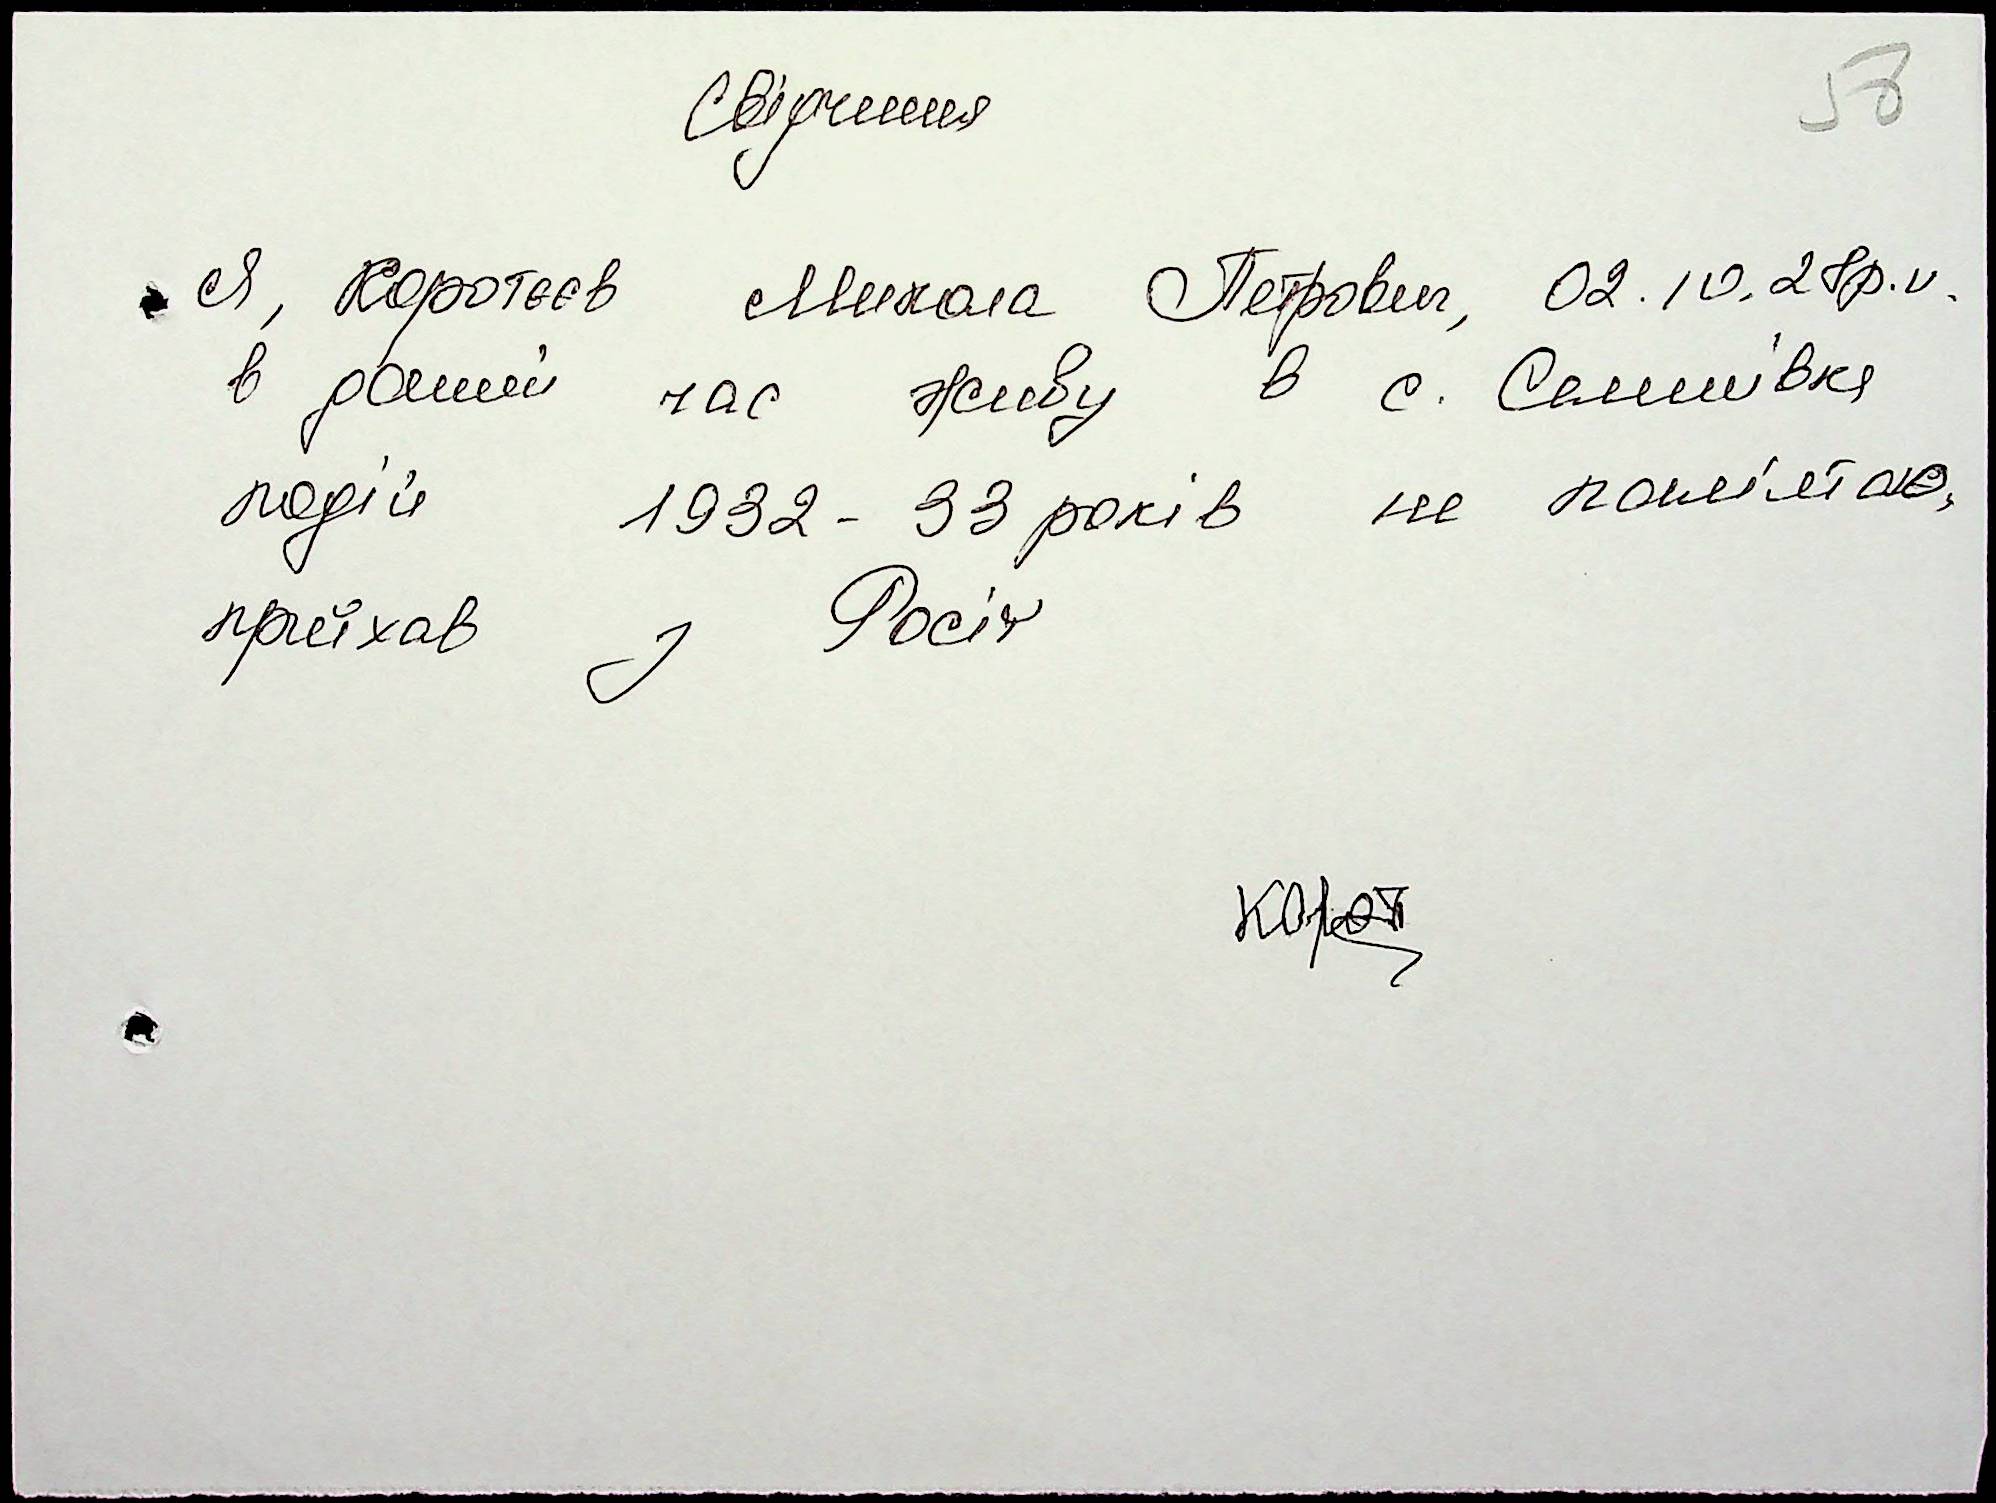 58
Свідчення
Я, Коротєєв Микола Петрович, 02.10.28р.н.
в даний час живу в с. Семенівка
подій 1932-33 років не памʼятаю,
приїхав з Росії
Корот